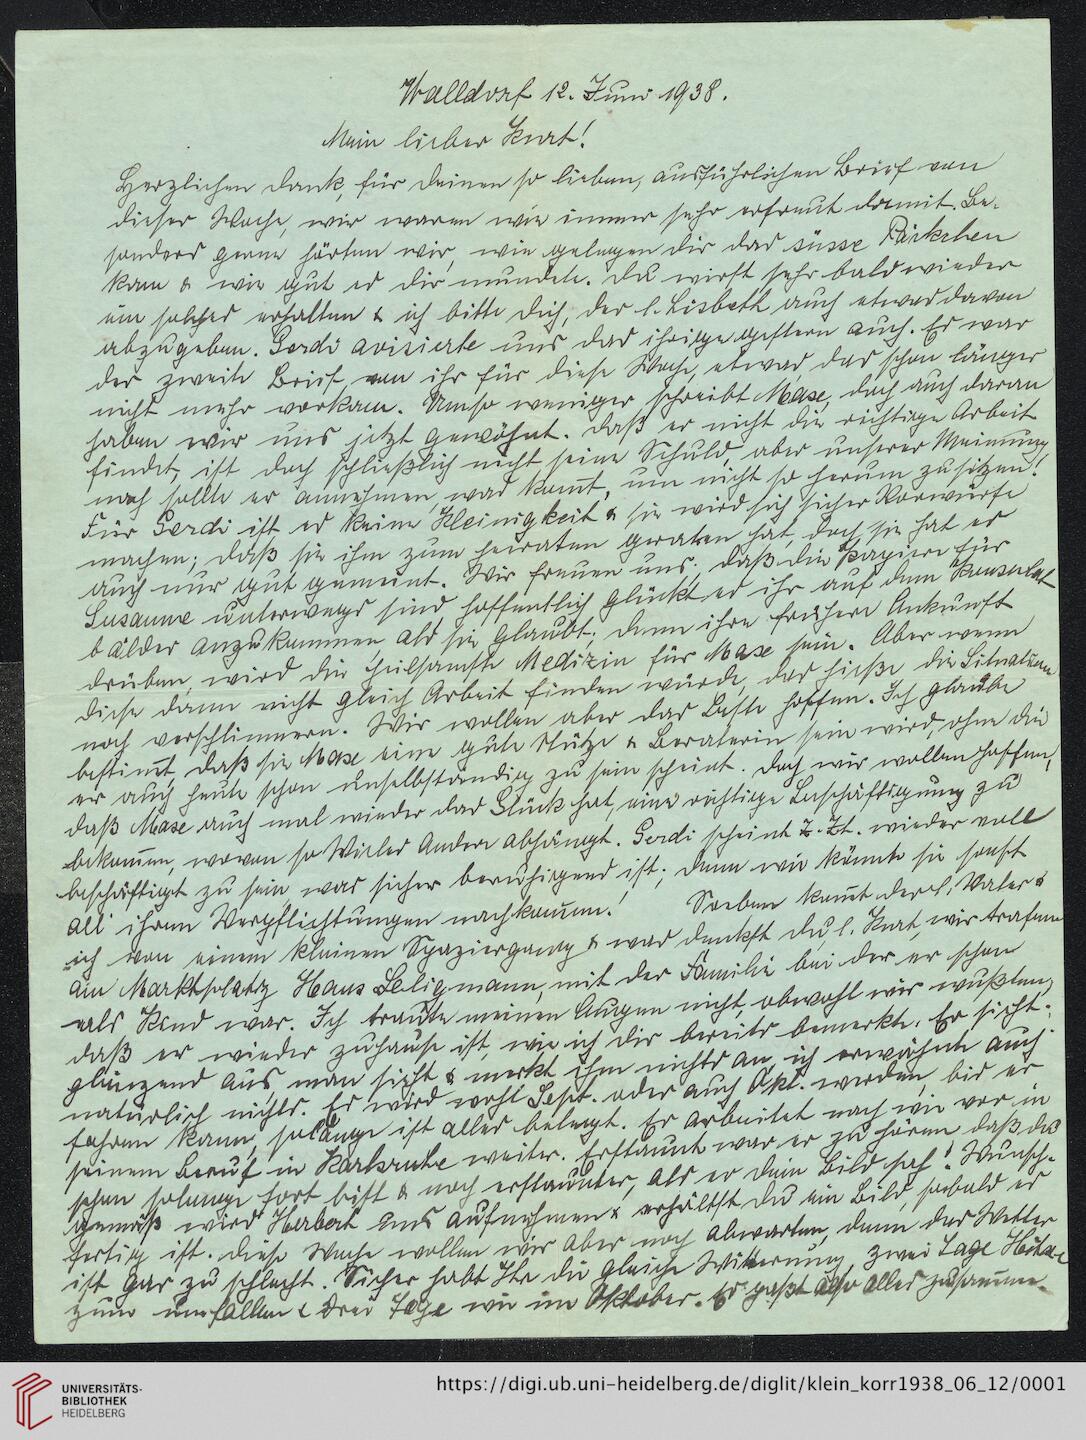 Walldorf 12. Juni 1938.
Mein lieber Kurt!
Herzlichen Dank, für Deinen so lieben, ausführlichen Brief von
dieser Woche, wir waren wie immer sehr erfreut damit. Be-
sonders gerne hörten wir, wie gelegen dir das süsse Päckchen
kam & wie gut es dir mundete. Du wirst sehr bald wieder
ein solches erhalten & ich bitte Dich, der l. Lisbeth auch etwas davon
abzugeben. Gerdi avisierte uns das ihrige gestern auch. Es war
der zweite Brief, von ihr für diese Woche, etwas das schon länger
nicht mehr vorkam. Umso weniger schreibt Maxe, doch auch daran
haben wir uns jetzt gewöhnt. Daß er nicht die richtige Arbeit
findet, ist doch schließlich nicht seine Schuld, aber unserer Meinung
nach sollte er annehmen, was kommt, um nicht so herum zu sitzen!
Für Gerdi ist es keine Kleinigkeit & sie wird sich sicher Vorwürfe
machen; daß sie ihm zum heiraten geraten hat, doch sie hat es
auch nur gut gemeint. Wir freuen uns, daß die Papiere für
Susanne unterwegs sind hoffentlich glückt es ihr auf dem Konsulat
bälder anzukommen als sie glaubt; denn ihre frühere Ankunft
drüben, wird die heilsamste Medizin für Maxe sein. Aber wenn
diese dann nicht gleich Arbeit finden würde, das hieße die Situation
noch verschlimmern. Wir wollen aber das Beste hoffen. Ich glaube
bestimmt, daß sie Maxe eine gute Stütze & Beraterin sein wird, ohne die
er auch heute schon unselbständig zu sein scheint. Doch wir wollen hoffen,
daß Maxe auch mal wieder das Glück hat, eine richtige Beschäftigung zu
bekommen, wovon so Vieles Andere abhängt. Gerdi scheint z. Zt. wieder voll
beschäftigt zu sein, was sicher beruhigend ist; denn wie könnte sie sonst
all ihren Verpflichtungen nachkommen! Soeben kommt der l. Vater &
ich von einem kleinen Spaziergang & was denkst Du, l. Kurt, wir trafen
am Marktplatz Hans Seligmann, mit der Familie bei der er schon
als Kind war. Ich traute meinen Augen nicht, obwohl wir wußten,
daß er wieder zuhause ist, wie ich dir bereits bemerkte. Er sieht
glänzend aus, man sieht & merkt ihm nichts an, ich erwähnte auch
natürlich nichts. Es wird wohl Sept. oder auch Okt. werden, bis er
fahren kann, solange ist alles belegt. Er arbeitet nach wie vor in
seinem Beruf in Karlsruhe weiter. Erstaunt war er zu hören, daß du
schon solange fort bist & noch erstaunter, als er dein Bild sah! Wunsch-
gemäß wird Herbert uns aufnehmen & erhältst Du ein Bild, sobald es
fertig ist. Diese Woche wollen wir aber noch abwarten, denn das Wetter
ist gar zu schlecht. Sicher habt Ihr die gleiche Witterung, zwei Tage Hitze
zum umfallen & drei Tage wie im Oktober. Es paßt also alles zusammen.
UNIVERSITÄTS-
BIBLIOTHEK
HEIDELBERG
https://digi.ub.uni-heidelberg.de/diglit/klein_korr1938_06_12/0001